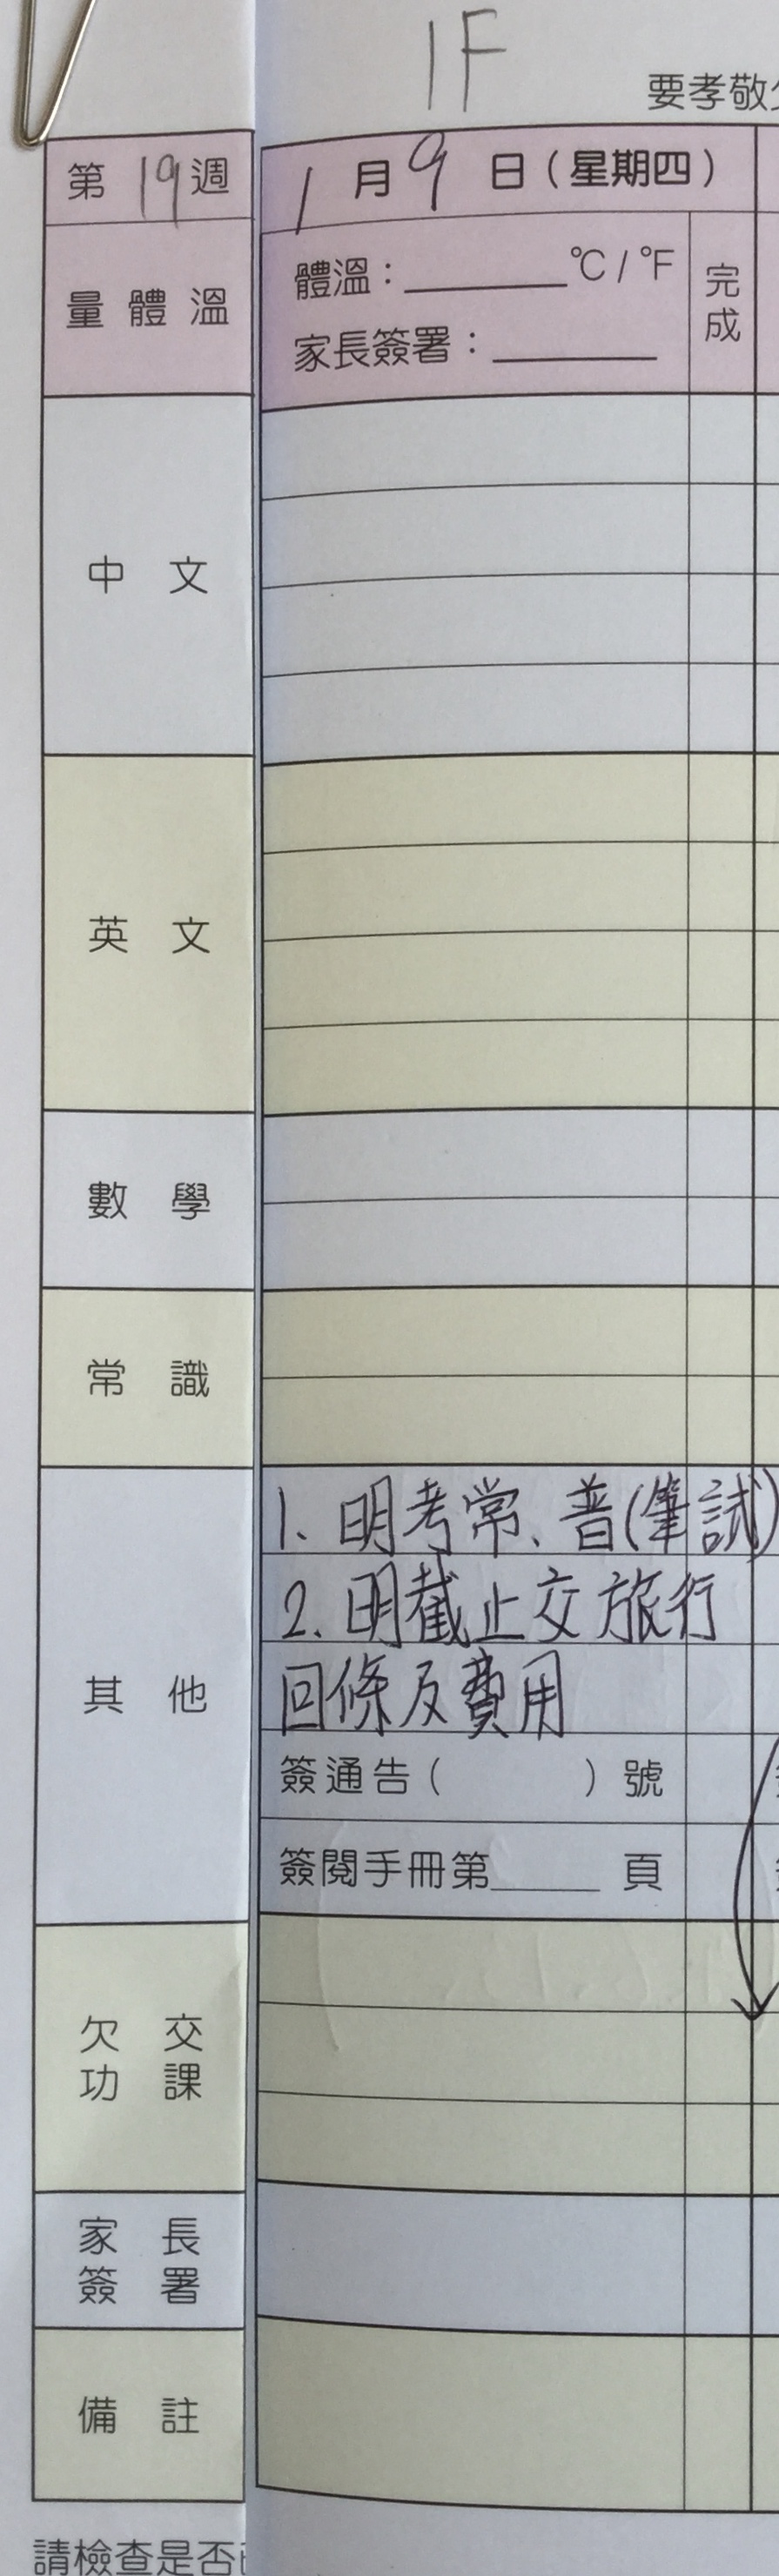 1F
要孝敬
第19週
1月9日(星期四)
量體溫
體溫：______℃/℉
完成
家長簽署：______
中文
英文
數學
常識
其他
1. 明考常、普(筆試)
2. 明截止交旅行
回條及費用
簽通告(      )號
簽閱手冊第______頁
欠交
功課
家長
簽署
備註
請檢查是否